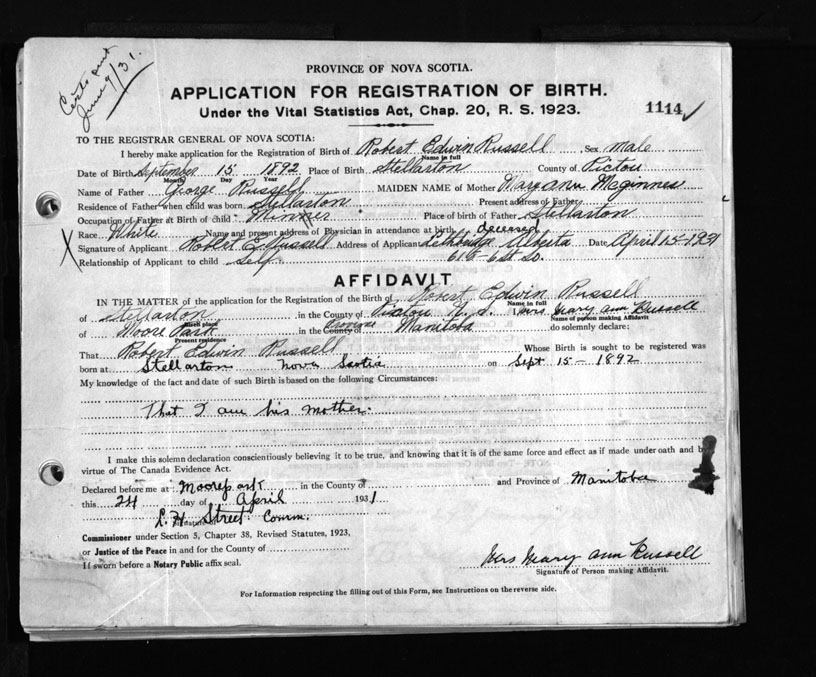 Certs sent
June 9/31.
PROVINCE OF NOVA SCOTIA.
APPLICATION FOR REGISTRATION OF BIRTH.
Under the Vital Statistics Act, Chap. 20, R. S. 1923.
1114 ✓
TO THE REGISTRAR GENERAL OF NOVA SCOTIA:
I hereby make application for the Registration of Birth of Robert Edwin Russell Sex Male
Name in full
Date of Birth September 15 1892 Place of Birth Stellarton County of Pictou
Month Day Year
Name of Father George Russell MAIDEN NAME of Mother Mary ann Mcginnes
Residence of Father when child was born Stellarton Present address of Father
Occupation of Father at Birth of child Minner Place of birth of Father Stellarton
X Race White Name and present address of Physician in attendance at birth deceased
Signature of Applicant Robert E Russell Address of Applicant Lethbridge Alberta Date April 15-1931
Relationship of Applicant to child self 616-6 St. So.
AFFIDAVIT
IN THE MATTER of the application for the Registration of the Birth of Robert Edwin Russell
Name in full
of Stellarton in the County of Pictou N. S. I, Mrs Mary ann Russell
Birth place Name of person making Affidavit
of Moore Park in the County of Province Manitoba do solemnly declare:
Present residence
That Robert Edwin Russell Whose Birth is sought to be registered was
born at Stellarton Nova Scotia on Sept 15-1892
My knowledge of the fact and date of such Birth is based on the following Circumstances:
That I am his mother.
I make this solemn declaration conscientiously believing it to be true, and knowing that it is of the same force and effect as if made under oath and by
virtue of The Canada Evidence Act.
Declared before me at Moorepark in the County of and Province of Manitoba
this 24 day of April 1931
Street Comm.
Signature of
Commissioner under Section 5, Chapter 38, Revised Statutes, 1923,
or Justice of the Peace in and for the County of
If sworn before a Notary Public affix seal.
Mrs Mary ann Russell
Signature of Person making Affidavit.
For Information respecting the filling out of this Form, see Instructions on the reverse side.